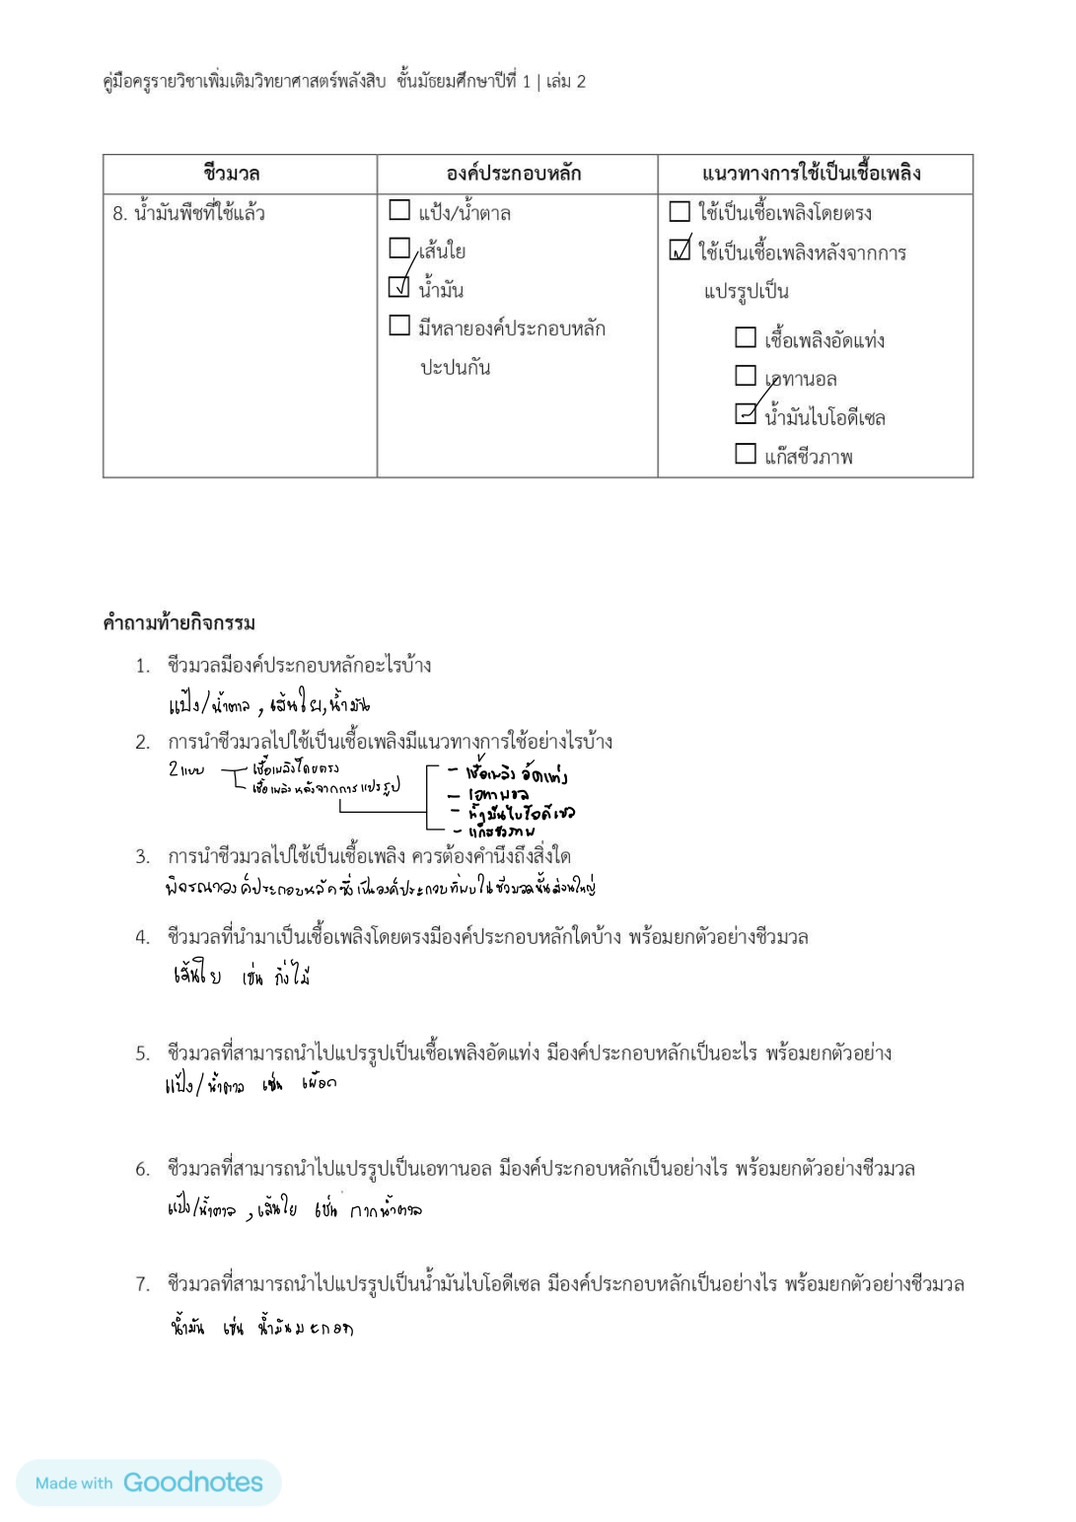 คู่มือครูรายวิชาเพิ่มเติมวิทยาศาสตร์พลังสิบ ชั้นมัธยมศึกษาปีที่ 1 | เล่ม 2
ชีวมวล
องค์ประกอบหลัก
แนวทางการใช้เป็นเชื้อเพลิง
8. น้ำมันพืชที่ใช้แล้ว
แป้ง/น้ำตาล
เส้นใย
น้ำมัน
มีหลายองค์ประกอบหลัก
ปะปนกัน
ใช้เป็นเชื้อเพลิงโดยตรง
ใช้เป็นเชื้อเพลิงหลังจากการ
แปรรูปเป็น
เชื้อเพลิงอัดแท่ง
เอทานอล
น้ำมันไบโอดีเซล
แก๊สชีวภาพ
คำถามท้ายกิจกรรม
1. ชีวมวลมีองค์ประกอบหลักอะไรบ้าง
แป้ง/น้ำตาล , เส้นใย, น้ำมัน
2. การนำชีวมวลไปใช้เป็นเชื้อเพลิงมีแนวทางการใช้อย่างไรบ้าง
2 แบบ
เชื้อเพลิงโดยตรง
เชื้อเพลิงหลังจากการแปรรูป
- เชื้อเพลิงอัดแท่ง
- เอทานอล
- น้ำมันไบโอดีเซล
- แก๊สชีวภาพ
3. การนำชีวมวลไปใช้เป็นเชื้อเพลิง ควรต้องคำนึงถึงสิ่งใด
พิจรณาองค์ประกอบหลักซึ่งเป็นองค์ประกอบที่พบในชีวมวลนั้นส่วนใหญ่
4. ชีวมวลที่นำมาเป็นเชื้อเพลิงโดยตรงมีองค์ประกอบหลักใดบ้าง พร้อมยกตัวอย่างชีวมวล
เส้นใย เช่น กิ่งไม้
5. ชีวมวลที่สามารถนำไปแปรรูปเป็นเชื้อเพลิงอัดแท่ง มีองค์ประกอบหลักเป็นอะไร พร้อมยกตัวอย่าง
แป้ง/น้ำตาล เช่น เผือก
6. ชีวมวลที่สามารถนำไปแปรรูปเป็นเอทานอล มีองค์ประกอบหลักเป็นอย่างไร พร้อมยกตัวอย่างชีวมวล
แป้ง/น้ำตาล , เส้นใย เช่น กากน้ำตาล
7. ชีวมวลที่สามารถนำไปแปรรูปเป็นน้ำมันไบโอดีเซล มีองค์ประกอบหลักเป็นอย่างไร พร้อมยกตัวอย่างชีวมวล
น้ำมัน เช่น น้ำมันมะกอก
Made with Goodnotes